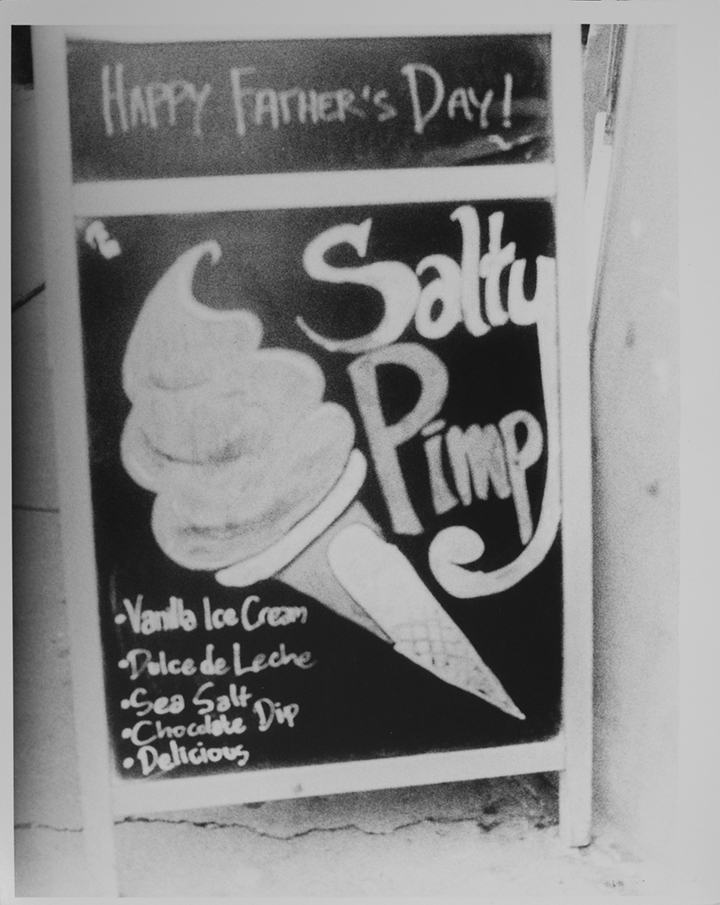 HAPPY FATHER'S DAY!
Salty
Pimp
•Vanilla Ice Cream
•Dulce de Leche
•Sea Salt
•Chocolate Dip
•Delicious